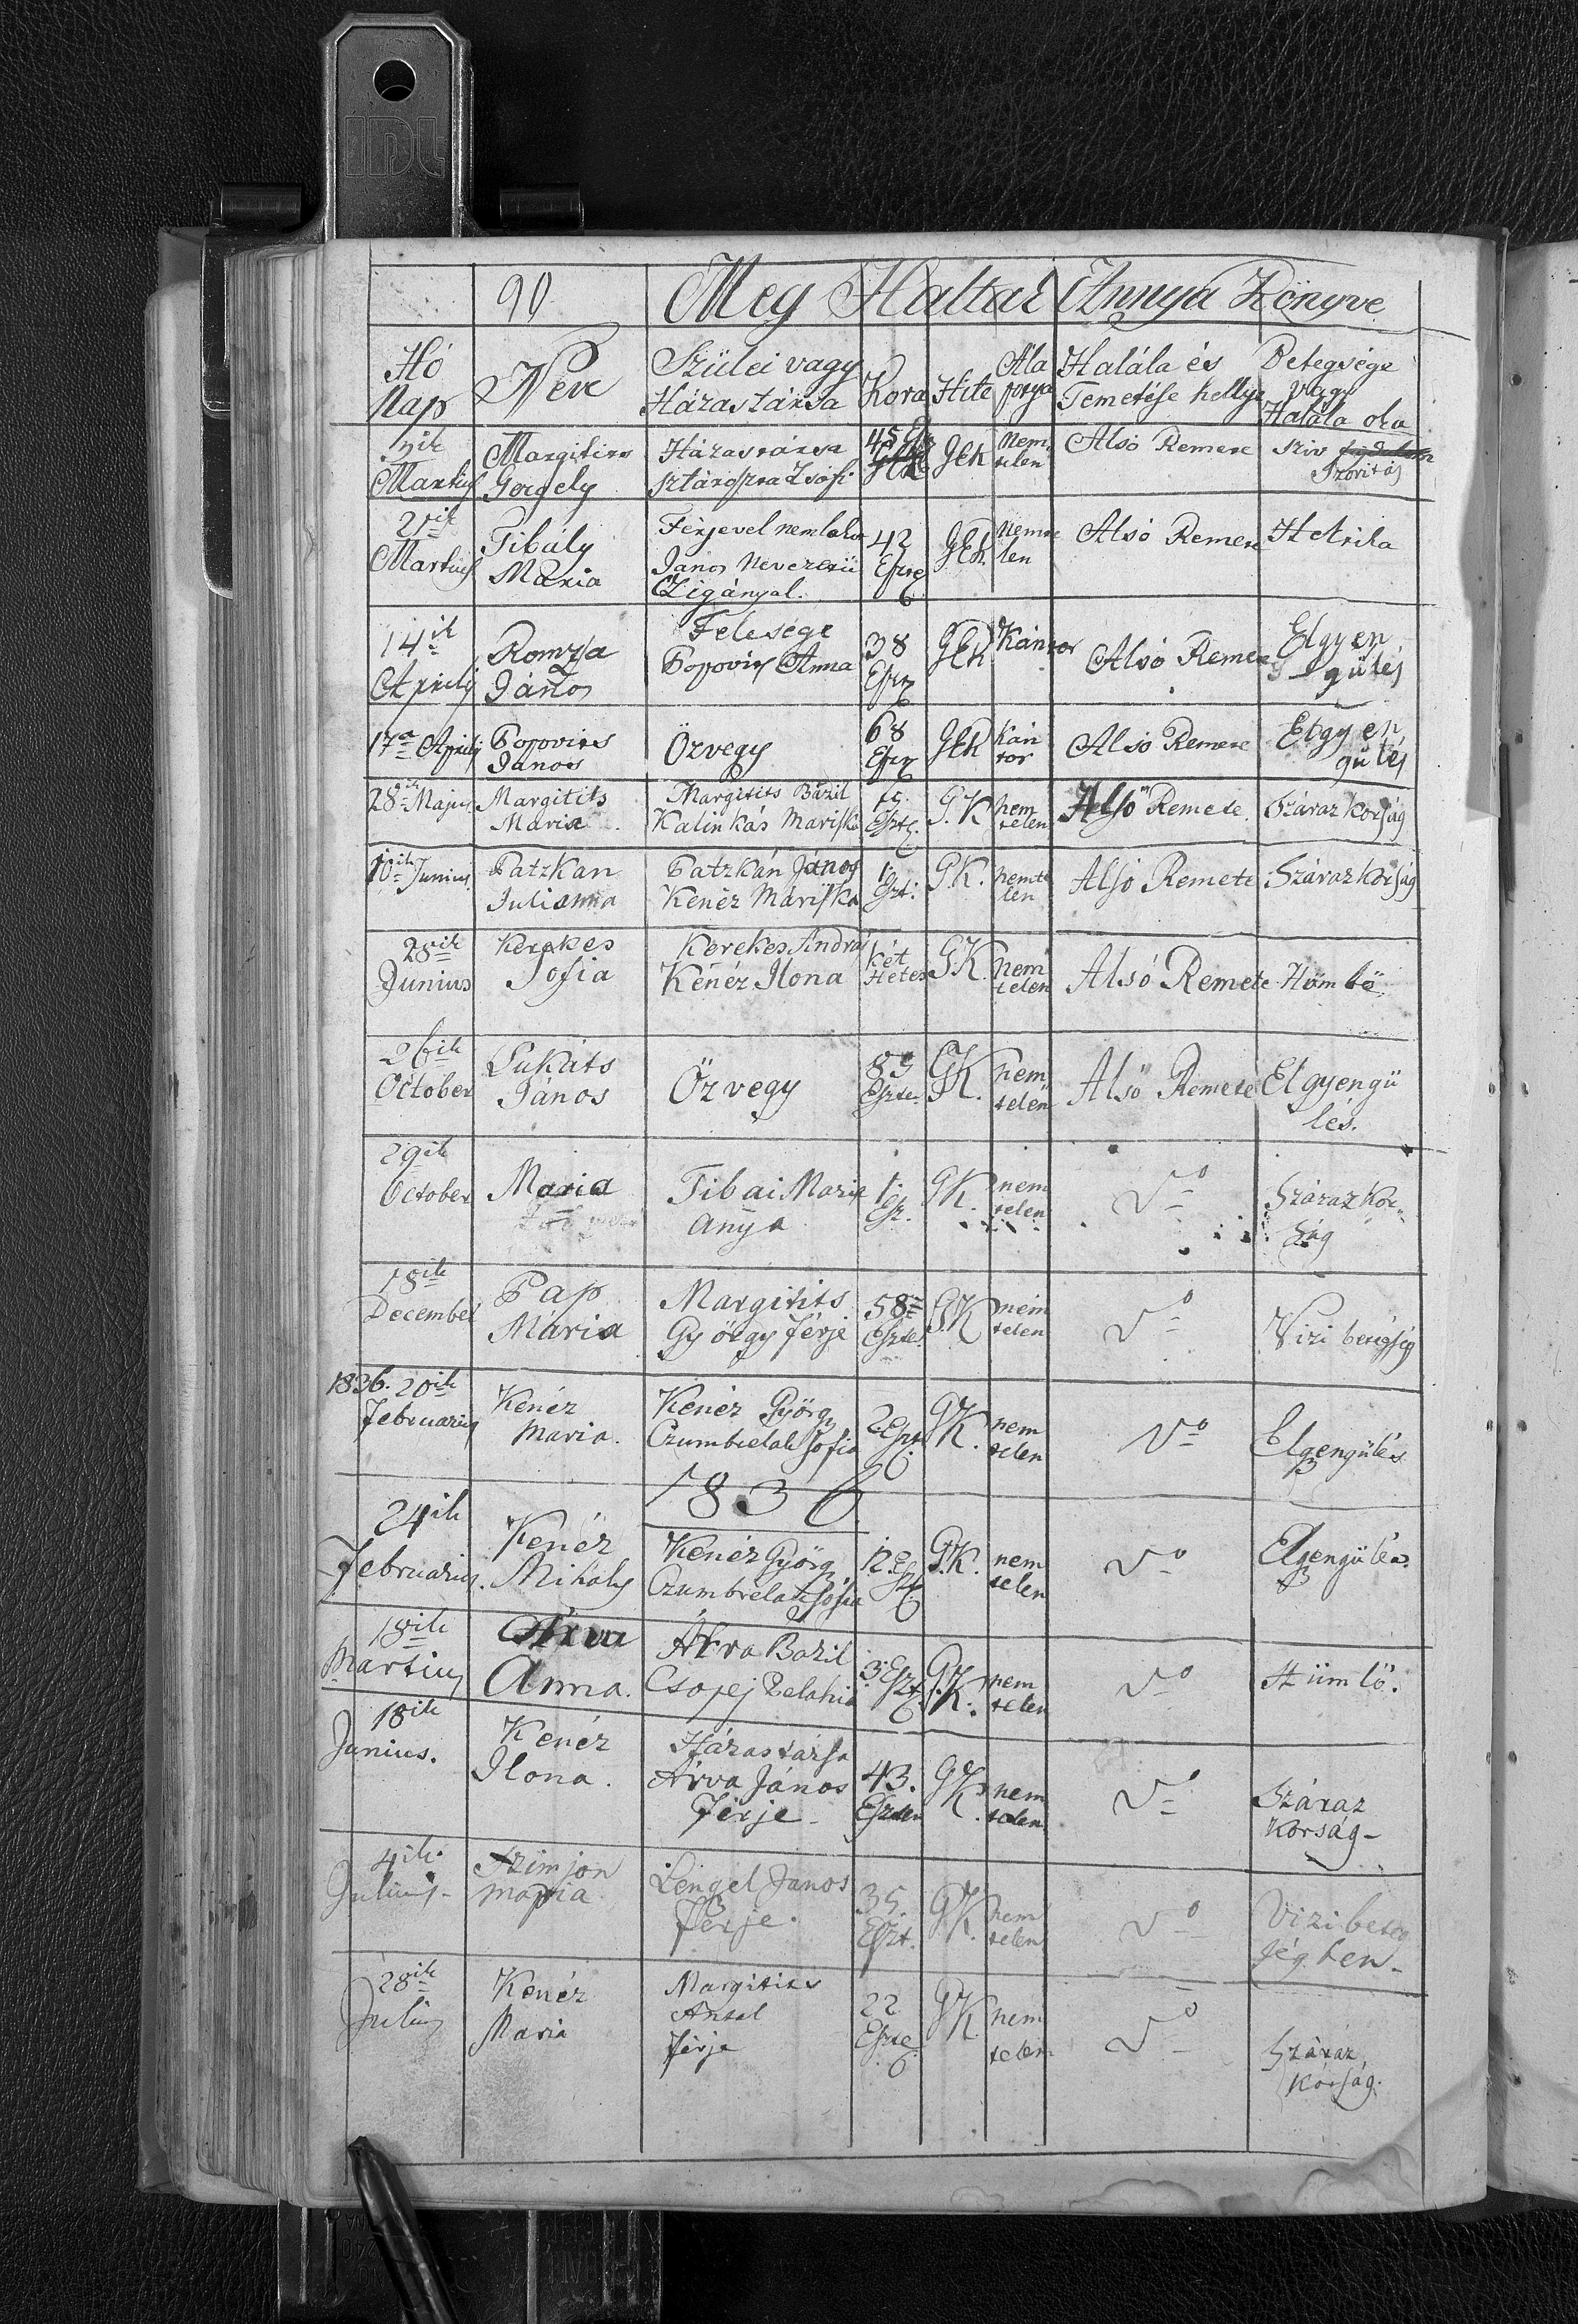 IDL
90 Meg Haltak Annya Könyve
Hó Nap
Neve
Szülei vagy Házastársa
Kora
Hite
Álaposya
Halála és Temetése hellye
Betegsége vagy Halála oka
Martius Margitics Gergely Házastársa Zsófi 45 GEK Nemtelen Alsó Remete sziv szoritás
Martius Tibály Maria Férjevel nem lakó János Nevezetü Czigányal. 42 Eszte GEK Nemtelen Alsó Remete Hektika
14ik Aprilis Romzsa János Felesége Popovits Anna 38 Eszt GEK Kántor Alsó Remete Elgyengülés
17a Aprilis Popovics Janos Özvegy 68 Eszt GEK Kántor Alsó Remete Elgyengülés
28ik Majus Margitits Maria Margitits Bazil Kalinkás Mariska Eszt. G.K nemtelen Alsó Remete Száraz korság
10ik Junius Patzkan Julianna Patzkán János Kenéz Máriska 1 Eszt. G.K. nemtelen Alsó Remete Száraz korság
28ik Junius Kerekes Sofia Kerekes András Kénéz Ilona két Hetes G.K. nemtelen Alsó Remete Hömlö
26ik October Lukáts János Özvegy Eszte. G.K. nemtelen Alsó Remete Elgyengülés.
29ik October Maria Tibai Marie anya 1. Esz. G.K. nemtelen Do Száraz korság
18ik December Pap Mária Margitits György férje 58 Eszte. G.K nemtelen Do Vizi betegség
1836. 20ik Februarius Kénéz Maria. Kénéz György Czumbelak Sofia 2 Eszt G.K. nemtelen Do Elgengülés
1836
24ik Februarius. Kenéz Mihaly Kenéz György Sofia 12 Esz G.K. nemtelen Do Elgengülés.
18ik Martius Árva Anna. Árva Bazil Csopej Pelahia 3 Eszt. G.K. nemtelen Do Hümlö.
18ik Junius. Kenéz Ilona. Házastársa Árva János férje 43. Eszten G.K. nemtelen Do Száraz korság
4ik Julius Szimjon maria Lengel Janos férje. 35. Eszt. G.K. nemtelen Do Vizi betegségben
28ik Julius Kenéz Maria Margitits Antal férje 22 Eszte G.K. nemtelen Do Száraz kórság.